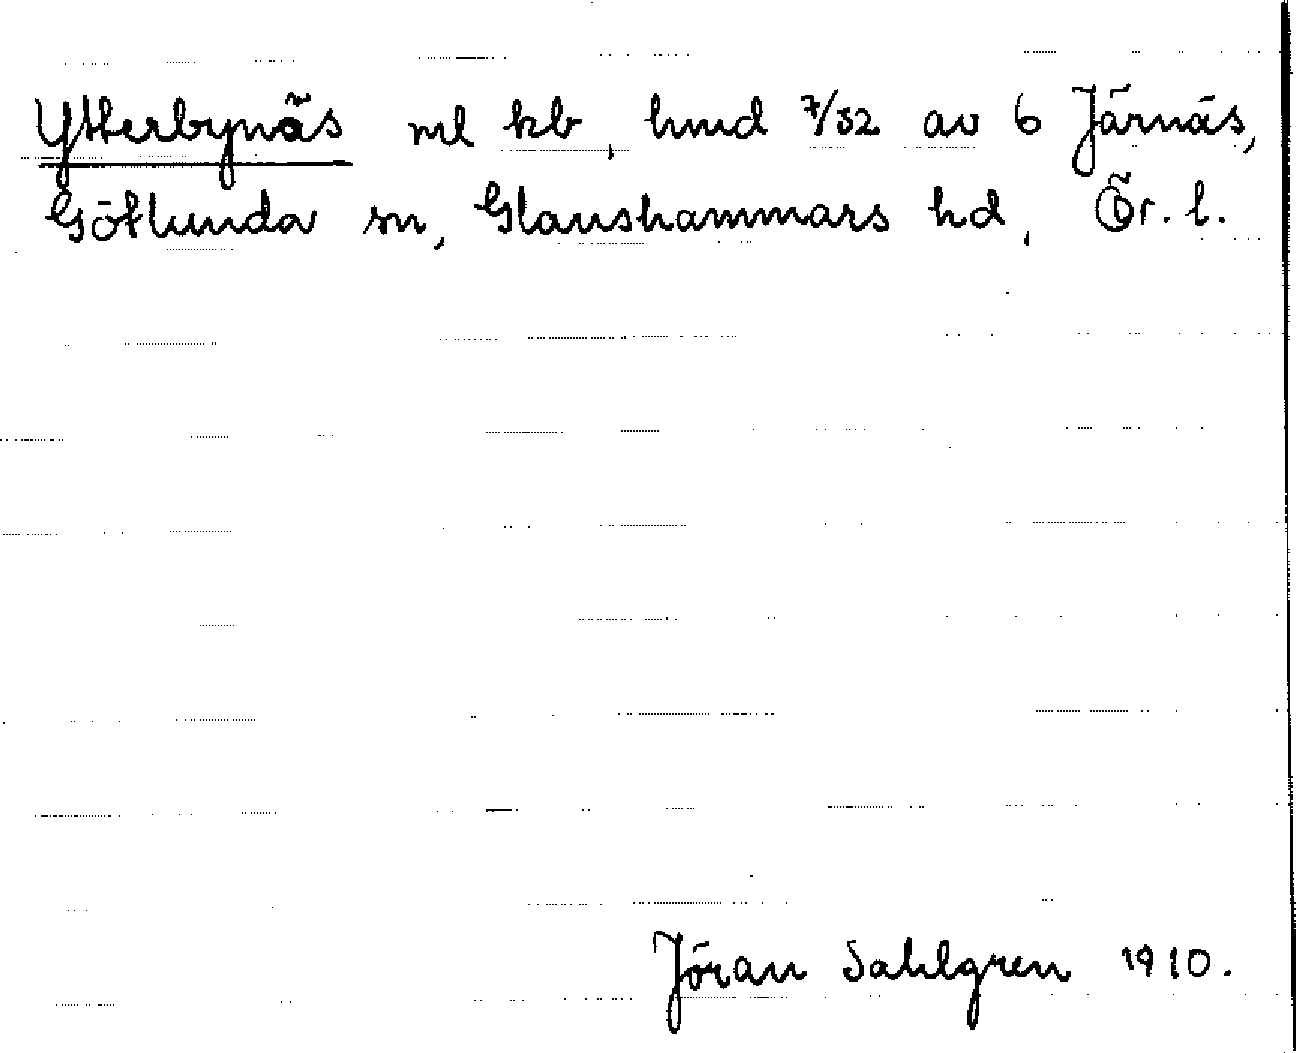 Ytterbynäs ml kb, hmd 7/32 av 6 Järnäs,
Götlunda sn, Glanshammars hd, Ör. l.
Jöran Sahlgren 1910.